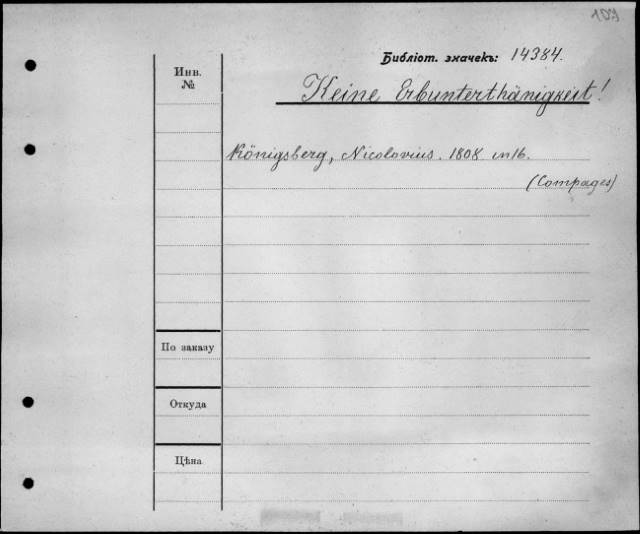 109
Библіот. значекъ: 14384.
Инв.
№
Keine Erbunterthänigkeit!
Königsberg, Nicolovius. 1808 in 16.
(Compages)
По заказу
Откуда
Цѣна